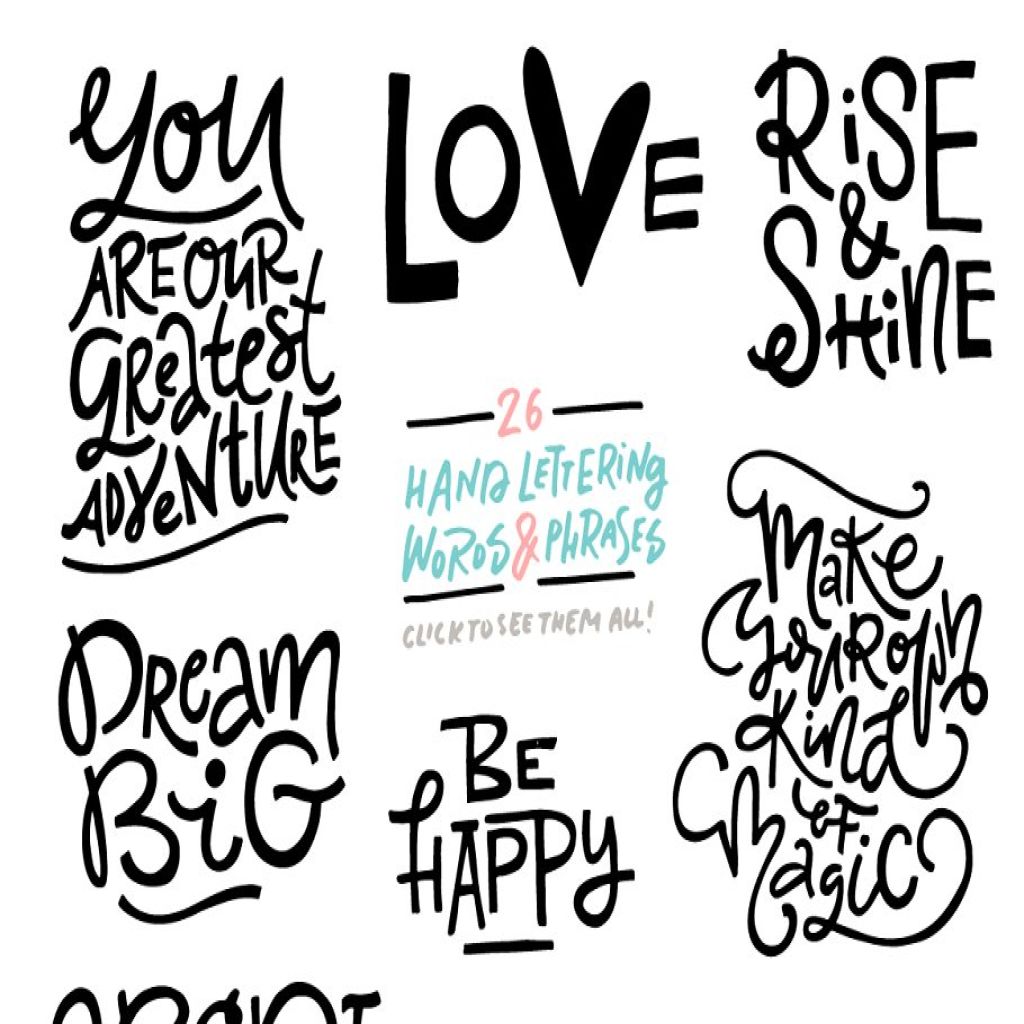 YOU
ARE OUR
GReatest
ADVeNtURE
LOVE
RiSE
&
SHiNE
26
HAND LETTERiNG
WORDS & PHRASES
CLICK TO SEE THEM ALL!
Make
YouR OWN
KiNd
of
Magic
DReam
BiG
BE
HAPPY